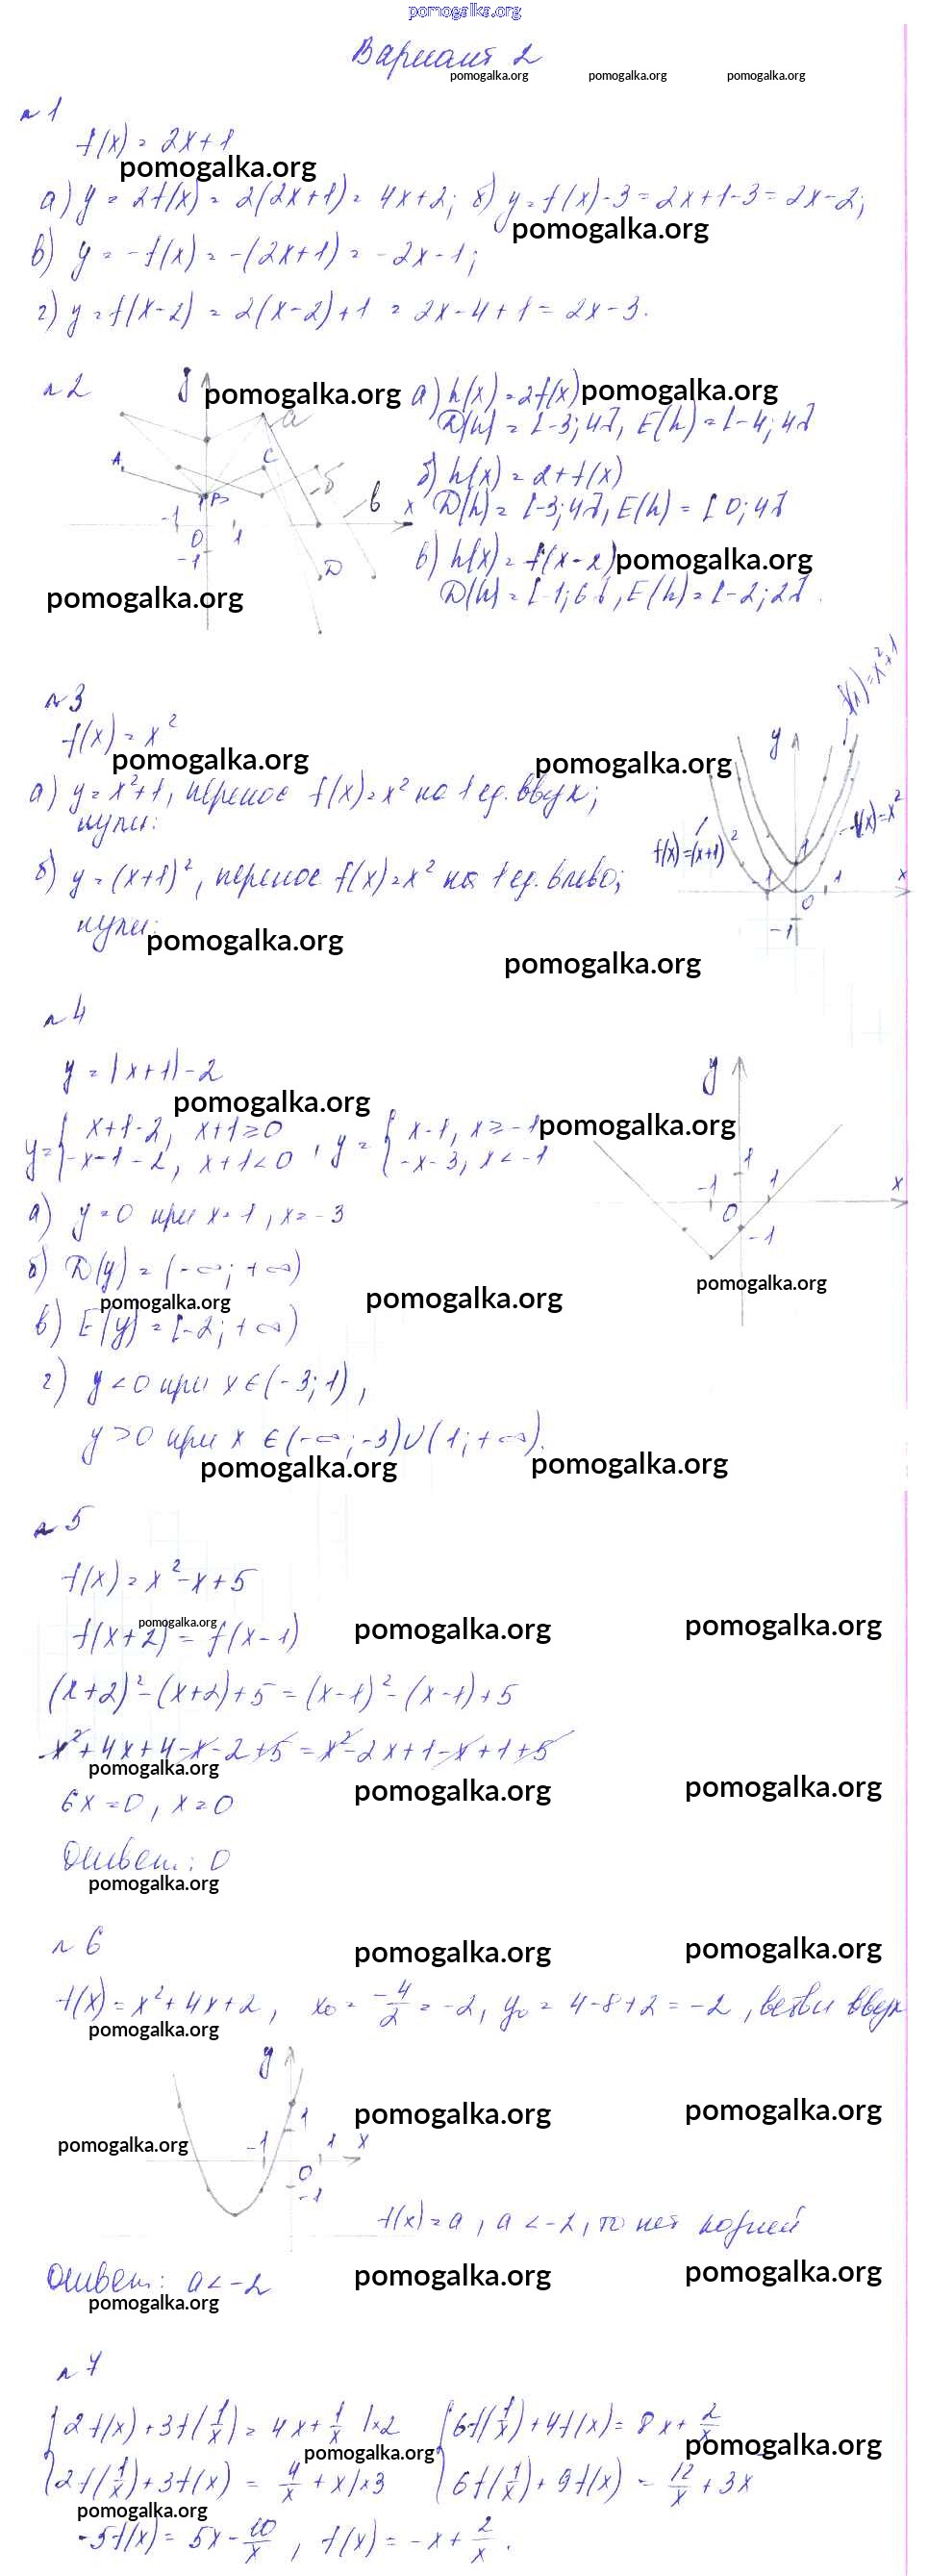 pomogalka.org
Вариант 2
pomogalka.org pomogalka.org pomogalka.org
n 1
f(x) = 2x+1
pomogalka.org
а) y = 2f(x) = 2(2x+1) = 4x+2; б) y = f(x)-3 = 2x+1-3 = 2x-2;
pomogalka.org
в) y = -f(x) = -(2x+1) = -2x-1;
г) y = f(x-2) = 2(x-2)+1 = 2x-4+1 = 2x-3.
n 2
y
pomogalka.org а) h(x) = 2f(x) pomogalka.org
D(h) = [-3;4], E(h) = [-4;4]
а
A C б в x
B
-1 0 1
-1
D
б) h(x) = 2+f(x)
D(h) = [-3;4], E(h) = [0;4]
в) h(x) = f(x-2) pomogalka.org
D(h) = [-1;6], E(h) = [-2;2].
pomogalka.org
n 3
f(x) = x²
f(x) = x²+1
y
pomogalka.org pomogalka.org
а) y = x²+1, перенос f(x) = x² на 1 ед. вверх;
нули:
f(x) = (x+1)²
f(x) = x²
б) y = (x+1)², перенос f(x) = x² на 1 ед. влево;
нули:
-1 0 1 x
1
-1
pomogalka.org
pomogalka.org
n 4
y = |x+1|-2
y
pomogalka.org
pomogalka.org
y = { x+1-2, x+1≥0 , y = { x-1, x≥-1
-x-1-2, x+1<0 -x-3, x<-1
1
-1 0 1 x
-1
а) y=0 при x=1, x=-3
б) D(y) = (-∞; +∞)
pomogalka.org pomogalka.org pomogalka.org
в) E(y) = [-2; +∞)
г) y<0 при x∈(-3;1),
y>0 при x∈(-∞;-3)∪(1;+∞).
pomogalka.org pomogalka.org
n 5
f(x) = x²-x+5
pomogalka.org
f(x+2) = f(x-1)
pomogalka.org pomogalka.org
(x+2)²-(x+2)+5 = (x-1)²-(x-1)+5
x²+4x+4-x-2+5 = x²-2x+1-x+1+5
pomogalka.org pomogalka.org pomogalka.org
6x=0, x=0
Ответ: 0
pomogalka.org
n 6
pomogalka.org pomogalka.org
f(x) = x²+4x+2, x₀ = -4/2 = -2, y₀ = 4-8+2 = -2, ветви вверх
pomogalka.org
y
1
-1 0 1 x
-1
pomogalka.org pomogalka.org
pomogalka.org
f(x)=a, a<-2, то нет корней
Ответ: a<-2
pomogalka.org pomogalka.org
pomogalka.org
n 7
{ 2f(x)+3f(1/x) = 4x+1/x |×2 { 6f(1/x)+4f(x) = 8x+2/x
pomogalka.org pomogalka.org
2f(1/x)+3f(x) = 4/x+x |×3 6f(1/x)+9f(x) = 12/x+3x
pomogalka.org
-5f(x) = 5x-10/x, f(x) = -x+2/x.